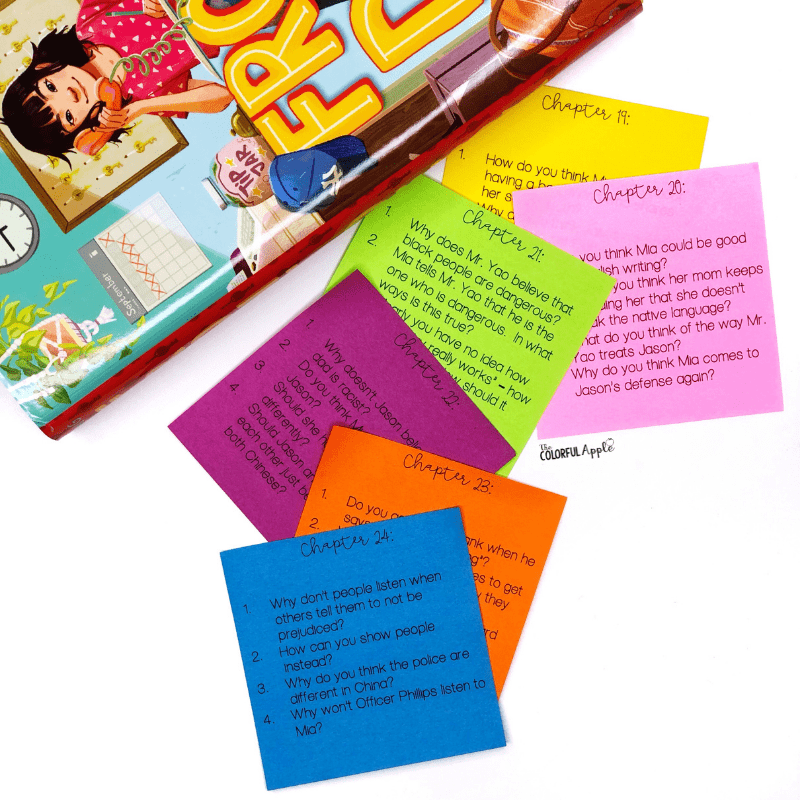 FRO
D
TIP
JAR
September
Chapter 19:
1. How do you think M
having a b
her s
Why d
Chapter 20:
you think Mia could be good
lish writing?
you think her mom keeps
ling her that she doesn't
ak the native language?
hat do you think of the way Mr.
ao treats Jason?
Why do you think Mia comes to
Jason's defense again?
Chapter 21:
1. Why does Mr. Yao believe that
black people are dangerous?
2. Mia tells Mr. Yao that he is the
one who is dangerous. In what
ways is this true?
arly you have no idea how
really works" - how
ow should it
Chapter 22:
1. Why doesn't Jason beli
dad is racist?
2. Do you think M
Jason?
3. Should she
differently?
4. Should Jason an
each other just b
both Chinese?
Chapter 23:
1. Do you
ank when he
says
g"?
2.
es to get
they
ard
Chapter 24:
1. Why don't people listen when
others tell them to not be
prejudiced?
2. How can you show people
instead?
3. Why do you think the police are
different in China?
4. Why won't Officer Phillips listen to
Mia?
The
COLORFUL Apple